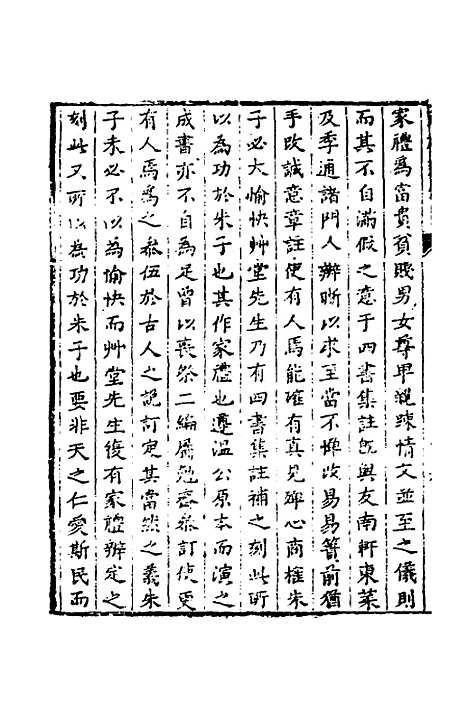 家禮爲富貴貧賤男女尊卑親疎情文並至之儀則
而其不自滿假之意于四書集註旣與友南軒東萊
及季通諸門人辦晰以求至當不憚改易易簀前猶
手改誠意章註使有人焉能確有真見殫心商榷朱
子必大愉快艸堂先生乃有四書集註補之刻此所
以為功於朱子也其作家禮也遵温公原本而演之
成書亦不自為足曾以喪祭二編屬勉齋叅訂使更
有人焉爲之叅伍於古人之説訂定其當然之義朱
子未必不以為愉快而艸堂先生復有家禮辨定之
刻此又所以為功於朱子也要非天之仁愛斯民而